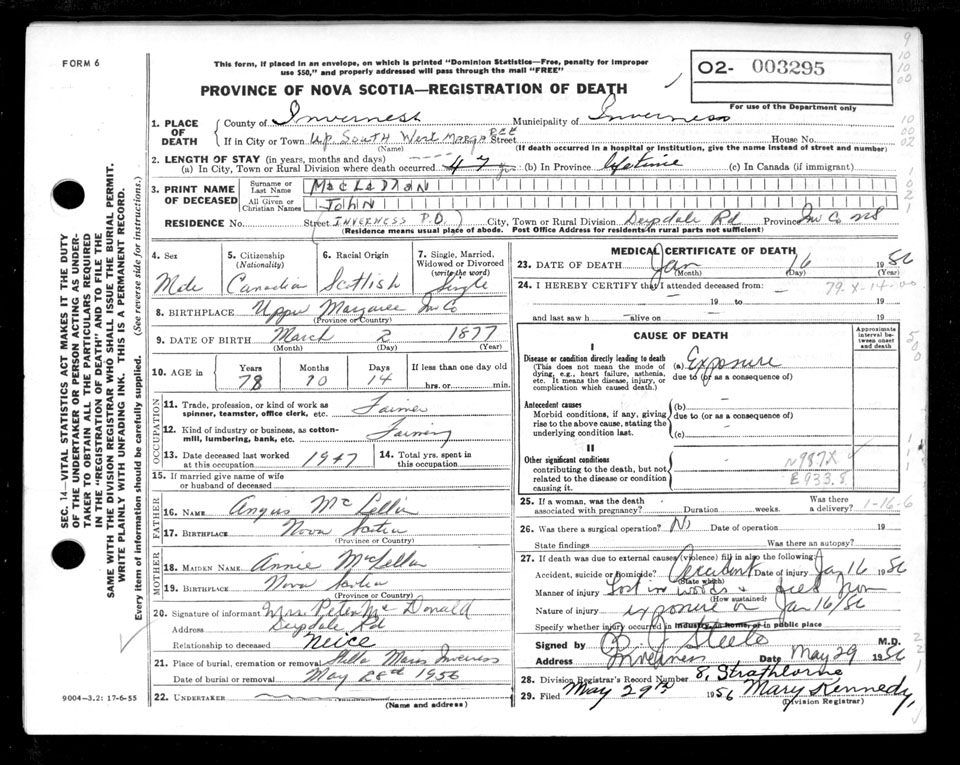 FORM 6
This form, if placed in an envelope, on which is printed "Dominion Statistics—Free, penalty for improper
use $50," and properly addressed will pass through the mail "FREE"
PROVINCE OF NOVA SCOTIA—REGISTRATION OF DEATH
O2- 003295
For use of the Department only
1. PLACE OF DEATH
County of Inverness Municipality of Inverness
If in City or Town Up South West Margaree Street House No.
(Name) (If death occurred in a hospital or institution, give the name instead of street and number)
2. LENGTH OF STAY (in years, months and days)
(a) In City, Town or Rural Division where death occurred 47 yrs (b) In Province Lifetime (c) In Canada (if immigrant)
3. PRINT NAME OF DECEASED
Surname or Last Name MacLellan
All Given or Christian Names John
RESIDENCE No. Street (Inverness P.O.) City, Town or Rural Division Deepdale Rd Province Inv Co NS
(Residence means usual place of abode. Post Office Address for residents in rural parts not sufficient)
4. Sex Male
5. Citizenship (Nationality) Canadian
6. Racial Origin Scottish
7. Single, Married, Widowed or Divorced (write the word) Single
8. BIRTHPLACE Upper Margaree Inv Co
(Province or Country)
9. DATE OF BIRTH March 2 1877
(Month) (Day) (Year)
10. AGE in Years 78 Months 10 Days 14 If less than one day old hrs. or min.
OCCUPATION
11. Trade, profession, or kind of work as spinner, teamster, office clerk, etc. Farmer
12. Kind of industry or business, as cotton-mill, lumbering, bank, etc. Farming
13. Date deceased last worked at this occupation 1947
14. Total yrs. spent in this occupation
15. If married give name of wife or husband of deceased
FATHER
16. NAME Angus McLellan
17. BIRTHPLACE Nova Scotia
(Province or Country)
MOTHER
18. MAIDEN NAME Annie MacLellan
19. BIRTHPLACE Nova Scotia
(Province or Country)
20. Signature of informant Mrs. Peter McDonald
Address Deepdale Rd
Relationship to deceased Neice
21. Place of burial, cremation or removal Stella Maris Inverness
Date of burial or removal May 1956
22. UNDERTAKER
(Name and address)
9004—3.2: 17-6-55
MEDICAL CERTIFICATE OF DEATH
23. DATE OF DEATH Jan 16 1956
(Month) (Day) (Year)
24. I HEREBY CERTIFY that I attended deceased from 79-X-14-00
19 to 19
and last saw h alive on 19
CAUSE OF DEATH
Approximate interval between onset and death
I
Disease or condition directly leading to death
(This does not mean the mode of dying, e.g., heart failure, asthenia, etc. It means the disease, injury, or complication which caused death.)
(a) Exposure
due to (or as a consequence of)
Antecedent causes
Morbid conditions, if any, giving rise to the above cause, stating the underlying condition last.
(b)
due to (or as a consequence of)
(c)
II
Other significant conditions contributing to the death, but not related to the disease or condition causing it.
N987X
E933.8
25. If a woman, was the death associated with pregnancy? Duration weeks. Was there a delivery? 1-16-6
26. Was there a surgical operation? No Date of operation 19
State findings Was there an autopsy?
27. If death was due to external causes (violence) fill in also the following:
Accident, suicide or homicide? Accident Date of injury Jan 16 1956
(State which)
Manner of injury Lost in woods & died from
(How sustained)
Nature of injury exposure on Jan 16/56
Specify whether injury occurred in industry, in home, or in public place
Signed by J Steele M.D.
Address Inverness Date May 29 1956
28. Division Registrar's Record Number 8, Strathlorne
29. Filed May 29th 1956 Mary Kennedy,
(Division Registrar)
SEC. 14—VITAL STATISTICS ACT MAKES IT THE DUTY
OF THE UNDERTAKER OR PERSON ACTING AS UNDER-
TAKER TO OBTAIN ALL THE PARTICULARS REQUIRED
IN THE "REGISTRATION OF DEATH" AND TO FILE THE
SAME WITH THE DIVISION REGISTRAR WHO SHALL ISSUE THE BURIAL PERMIT.
WRITE PLAINLY WITH UNFADING INK. THIS IS A PERMANENT RECORD.
Every item of information should be carefully supplied. (See reverse side for instructions.)